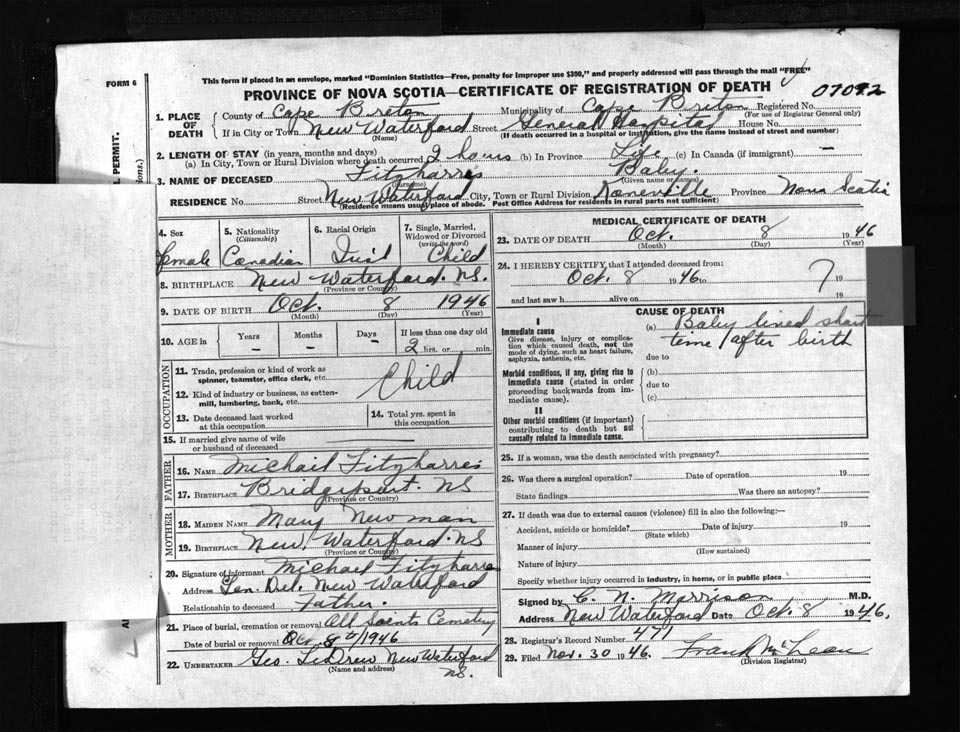 This form if placed in an envelope, marked "Dominion Statistics—Free, penalty for improper use $300," and properly addressed will pass through the mail "FREE"
FORM 6
PROVINCE OF NOVA SCOTIA—CERTIFICATE OF REGISTRATION OF DEATH
07092
1. PLACE OF DEATH County of Cape Breton Municipality of Cape Breton Registered No.
(For use of Registrar General only)
If in City or Town New Waterford Street General Hospital House No.
(Name) (If death occurred in a hospital or institution, give the name instead of street and number)
2. LENGTH OF STAY (in years, months and days)
(a) In City, Town or Rural Division where death occurred 2 hours (b) In Province Life (c) In Canada (if immigrant) —
3. NAME OF DECEASED Fitzharris Baby
(Surname) (Given name or names)
RESIDENCE No. Street New Waterford City, Town or Rural Division Province Nova Scotia
(Residence means usual place of abode. Post Office Address for residents in rural parts not sufficient)
L PERMIT.
4. Sex Female
5. Nationality (Citizenship) Canadian
6. Racial Origin Irish
7. Single, Married, Widowed or Divorced (write the word) Child
8. BIRTHPLACE New Waterford. N.S.
(Province or Country)
9. DATE OF BIRTH Oct. 8 1946
(Month) (Day) (Year)
10. AGE in Years – Months – Days – If less than one day old 2 hrs. or min.
OCCUPATION
11. Trade, profession or kind of work as spinner, teamster, office clerk, etc.
12. Kind of industry or business, as cotten-mill, lumbering, bank, etc.
Child
13. Date deceased last worked at this occupation
14. Total yrs. spent in this occupation
15. If married give name of wife or husband of deceased
FATHER
16. NAME Michail Fitzharris
17. BIRTHPLACE Bridgeport. NS
(Province or Country)
MOTHER
18. MAIDEN NAME Mary Newman
19. BIRTHPLACE New Waterford. NS
(Province or Country)
20. Signature of informant Michael Fitzharris
Address Gen. Del. New Waterford
Relationship to deceased Father.
21. Place of burial, cremation or removal All Saints Cemetery
Date of burial or removal Oct. 8th/1946
22. UNDERTAKER Geo. LeDrew New Waterford
(Name and address) NS.
MEDICAL CERTIFICATE OF DEATH
23. DATE OF DEATH Oct. 8 1946
(Month) (Day) (Year)
24. I HEREBY CERTIFY, that I attended deceased from:
Oct. 8 1946 to 19
and last saw h alive on 19
CAUSE OF DEATH
I
Immediate cause
Give disease, injury or complication which caused death, not the mode of dying, such as heart failure, asphyxia, asthenia, etc.
(a) Baby lived short time after birth
due to
Morbid conditions, if any, giving rise to immediate cause (stated in order proceeding backwards from immediate cause).
(b)
due to
(c)
II
Other morbid conditions (if important) contributing to death but not causally related to immediate cause.
25. If a woman, was the death associated with pregnancy?
26. Was there a surgical operation? Date of operation 19
State findings Was there an autopsy?
27. If death was due to external causes (violence) fill in also the following:—
Accident, suicide or homicide? Date of injury 19
(State which)
Manner of injury
(How sustained)
Nature of injury
Specify whether injury occurred in industry, in home, or in public place
Signed by C. N. Morrison M.D.
Address New Waterford Date Oct. 8 1946.
28. Registrar's Record Number 471
29. Filed Nov. 30 1946. Frank McLean
(Division Registrar)